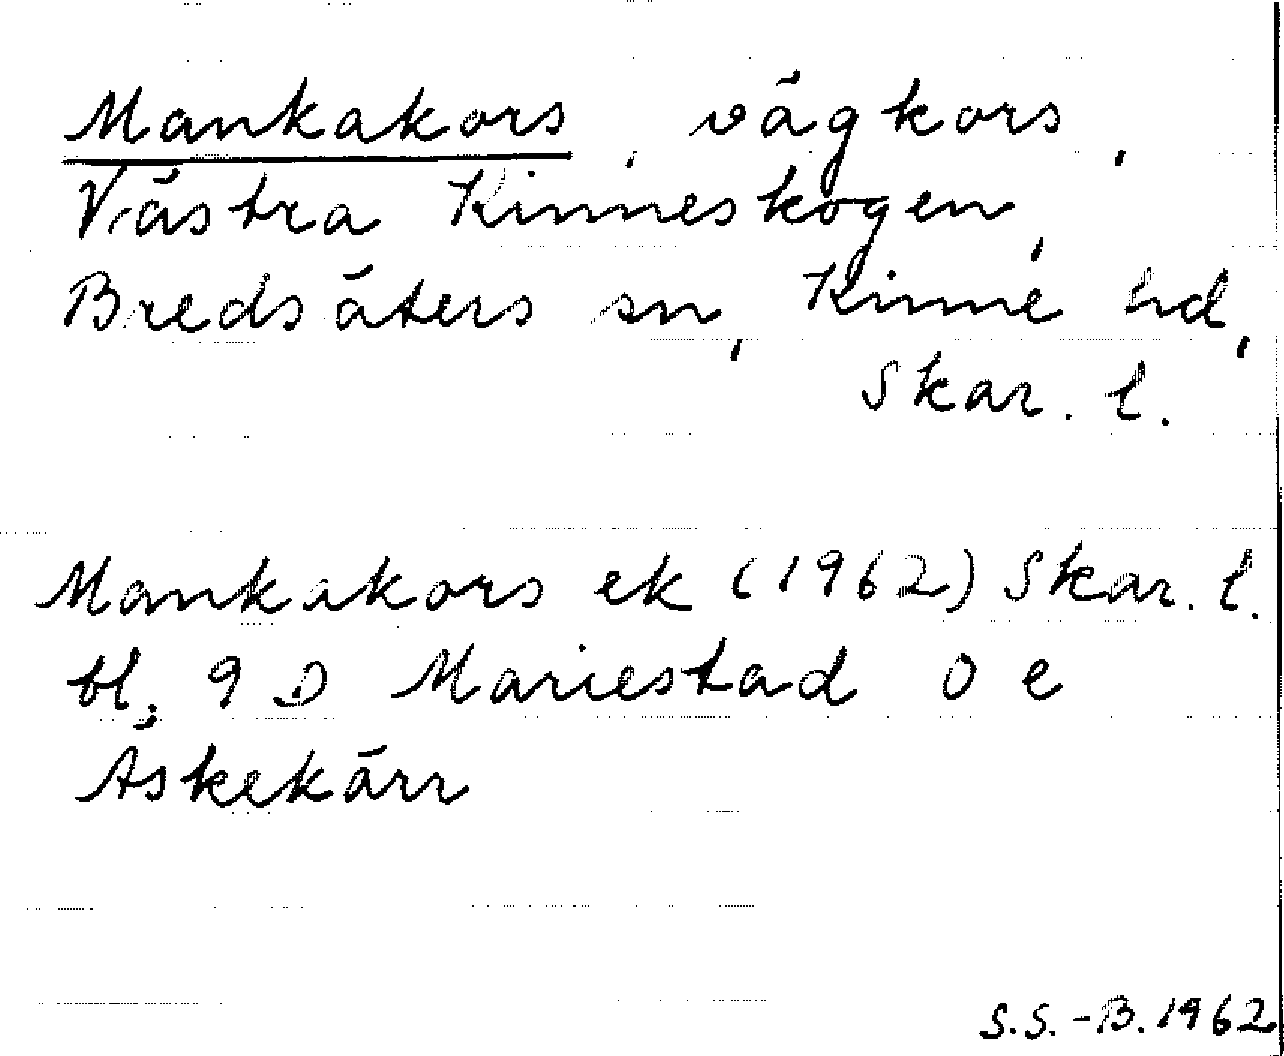 Mankakors, vägkors,
Västra Kinneskogen,
Bredsäters sn, Kinne hd,
Skar. l.
Mankakors ek (1962) Skar. l.
bl. 9 D Mariestad 0 e
Äskekärr
S.S.-B. 1962